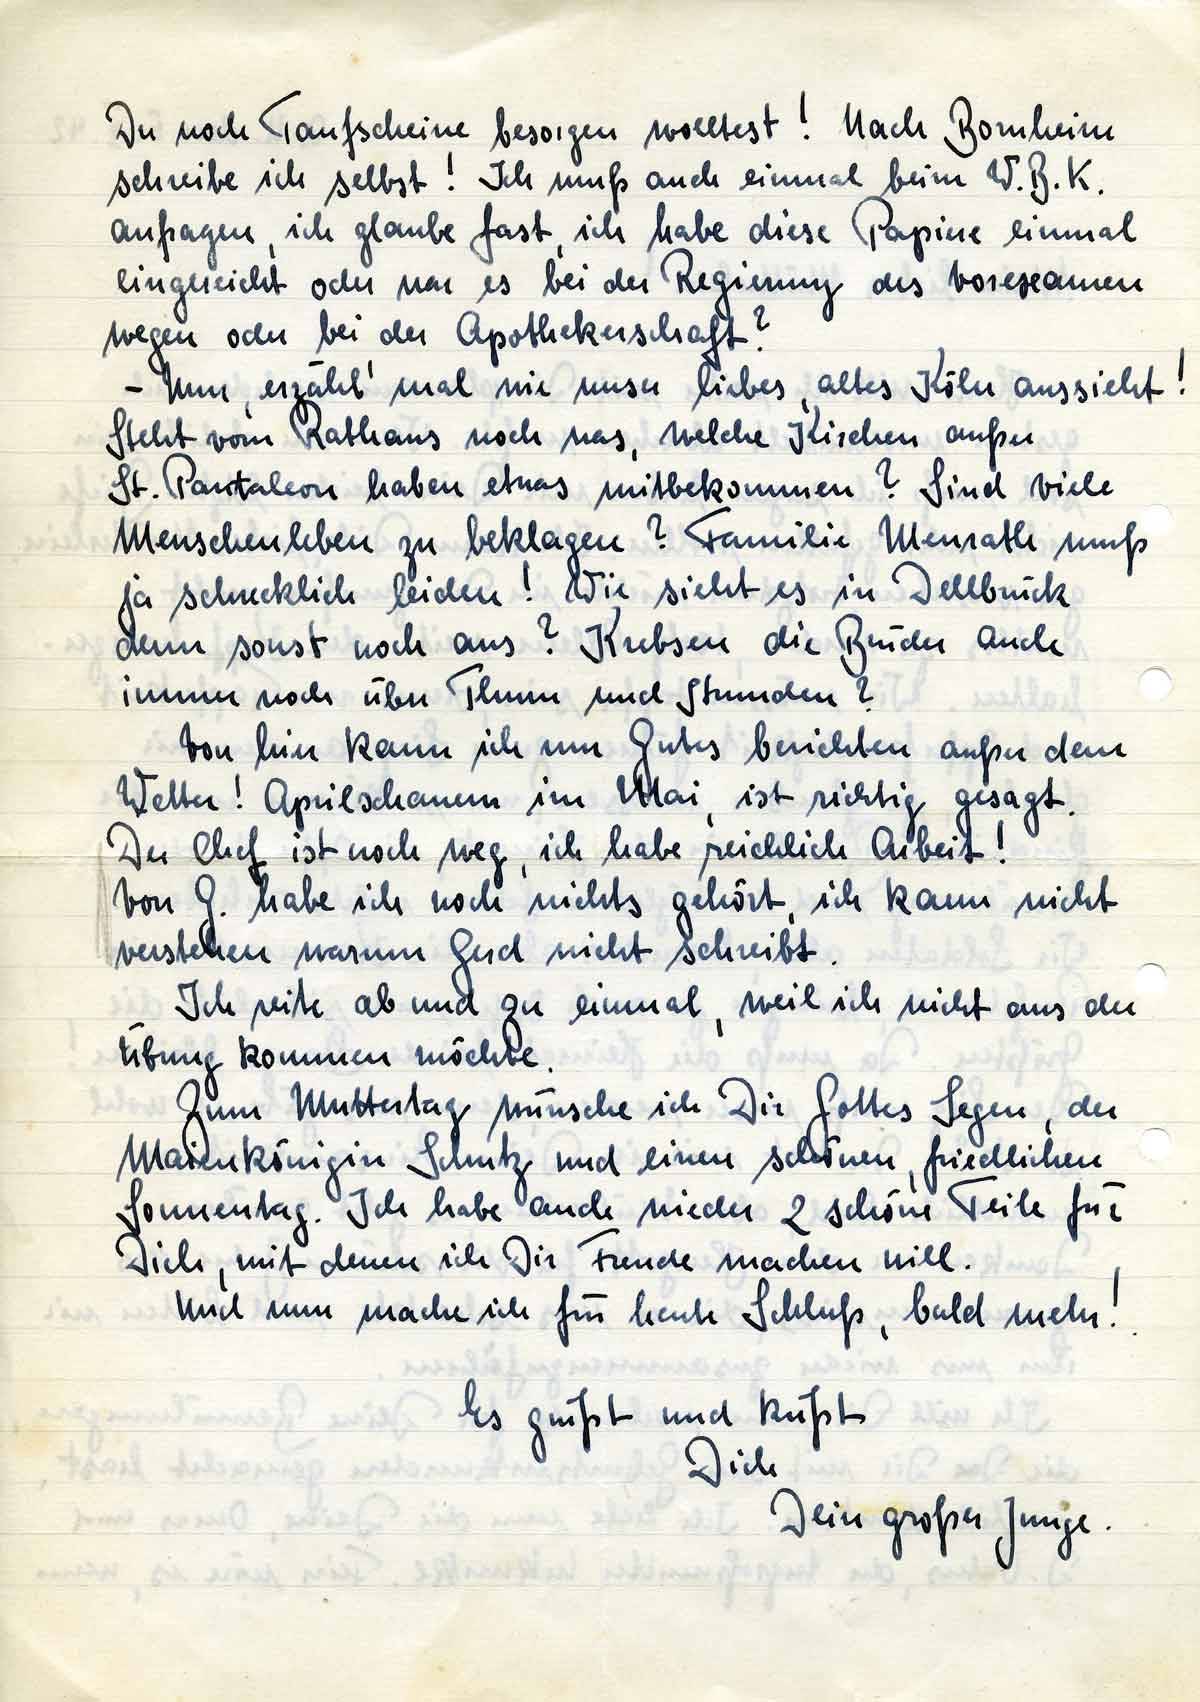 Du noch Taufscheine besorgen wolltest! Nach Bornheim
schreibe ich selbst! Ich muß auch einmal beim W.B.K.
anfragen, ich glaube fast, ich habe diese Papiere einmal
eingereicht oder war es bei der Regierung des Vorexamen
wegen oder bei der Apothekerschaft?
- Nun, erzähl' mal wie unser liebes, altes Köln aussieht!
Steht vom Rathaus noch was, welche Kirchen außer
St. Pantaleon haben etwas mitbekommen? Sind viele
Menschenleben zu beklagen? Familie Menrath muß
ja schrecklich leiden! Wie sieht es in Dellbrück
denn sonst noch aus? Krebsen die Brüder auch
immer noch über Flum und Stunden?
Von hier kann ich nur Gutes berichten außer dem
Wetter! Aprilschauern im Mai, ist richtig gesagt.
Der Chef ist noch weg, ich habe reichlich Arbeit!
Von G. habe ich noch nichts gehört, ich kann nicht
verstehen warum Gerd nicht schreibt.
Ich reite ab und zu einmal, weil ich nicht aus der
Übung kommen möchte.
Zum Muttertag wünsche ich Dir Gottes Segen, der
Maienkönigin Schutz und einen schönen, friedlichen
Sonnentag. Ich habe auch wieder 2 schöne Teile für
Dich, mit denen ich Dir Freude machen will.
Und nun mache ich für heute Schluß, bald mehr!
Es grüßt und küßt
Dich
Dein großer Junge.